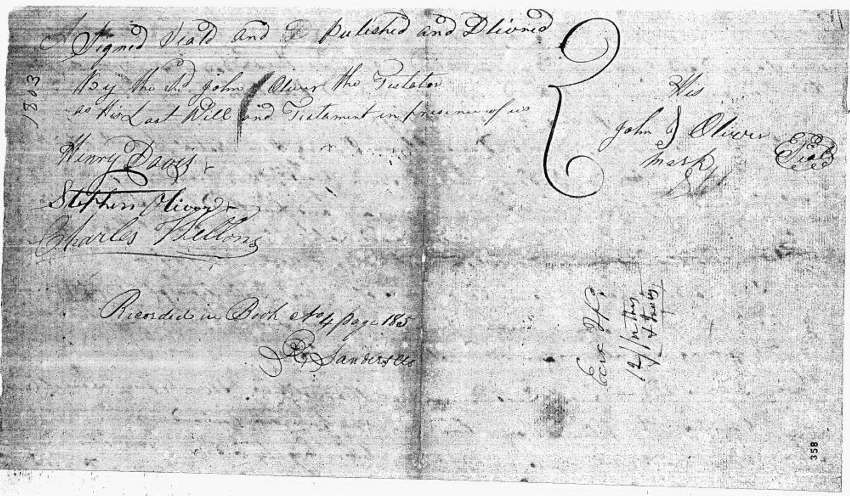 Signed Seald and Pulished and Dlivred
By the sd John Oliver the Testator
as His Last Will and Testament in presence of us
Henry Davis
Stephen
Charles Helton
His
John Oliver
mark
Seal
1803
Recorded in Book No 4 page 185
Sanders
358